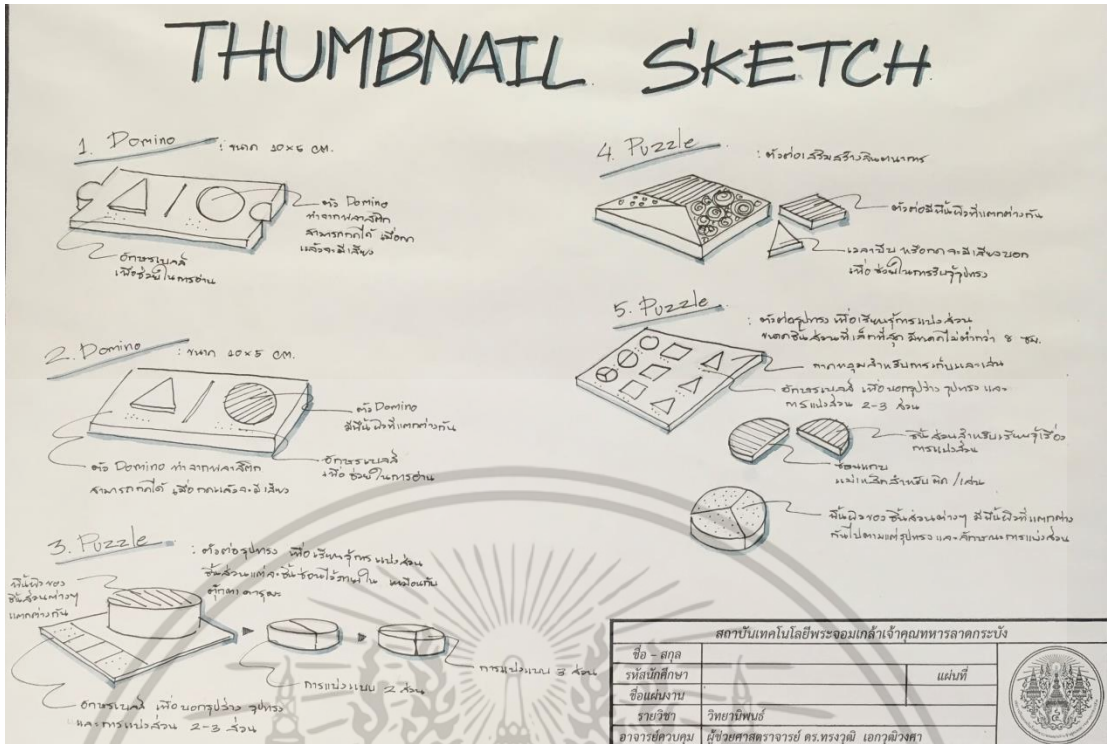 THUMBNAIL SKETCH
1. Domino : ขนาด 10×5 CM.
ตัว Domino
ทำจากพลาสติก
สามารถกดได้ เมื่อกด
แล้วจะมีเสียง
อักษรเบลล์
เพื่อช่วยในการอ่าน
2. Domino : ขนาด 10×5 CM.
ตัว Domino
มีพื้นผิวที่แตกต่างกัน
ตัว Domino ทำจากพลาสติก
สามารถกดได้ เมื่อกดแล้วจะมีเสียง
อักษรเบลล์
เพื่อช่วยในการอ่าน
3. Puzzle : ตัวต่อรูปทรง เพื่อเรียนรู้การแบ่งส่วน
ชิ้นส่วนแต่ละชิ้นซ่อนไว้ภายใน เหมือนกับ
ตุ๊กตา
พื้นผิวของ
ชิ้นส่วนต่างๆ
แตกต่างกัน
การแบ่งแบบ 2 ส่วน
การแบ่งแบบ 3 ส่วน
อักษรเบลล์ เพื่อบอกรูปร่าง รูปทรง
และการแบ่งส่วน 2-3 ส่วน
4. Puzzle : ตัวต่อเสริมสร้างจินตนาการ
ตัวต่อมีพื้นผิวที่แตกต่างกัน
เวลาบีบ หรือกดจะมีเสียงบอก
เพื่อช่วยในการรับรู้รูปทรง
5. Puzzle : ตัวต่อรูปทรง เพื่อเรียนรู้การแบ่งส่วน
ขนาดชิ้นส่วนที่เล็กที่สุด มีขนาดไม่ต่ำกว่า 8 ซม.
ถาดหลุมสำหรับการเก็บและเล่น
อักษรเบลล์ เพื่อบอกรูปร่าง รูปทรง และ
การแบ่งส่วน 2-3 ส่วน
ชิ้นส่วนสำหรับเรียนรู้เรื่อง
การแบ่งส่วน
ซ่อนแถบ
แม่เหล็กสำหรับติด/เล่น
พื้นผิวของชิ้นส่วนต่างๆ มีพื้นผิวที่แตกต่าง
กันไปตามแต่รูปทรง และลักษณะการแบ่งส่วน
สถาบันเทคโนโลยีพระจอมเกล้าเจ้าคุณทหารลาดกระบัง
ชื่อ - สกุล
รหัสนักศึกษา แผ่นที่
ชื่อแผ่นงาน
รายวิชา วิทยานิพนธ์
อาจารย์ควบคุม ผู้ช่วยศาสตราจารย์ ดร.ทรงวุฒิ เอกวุฒิวงศา